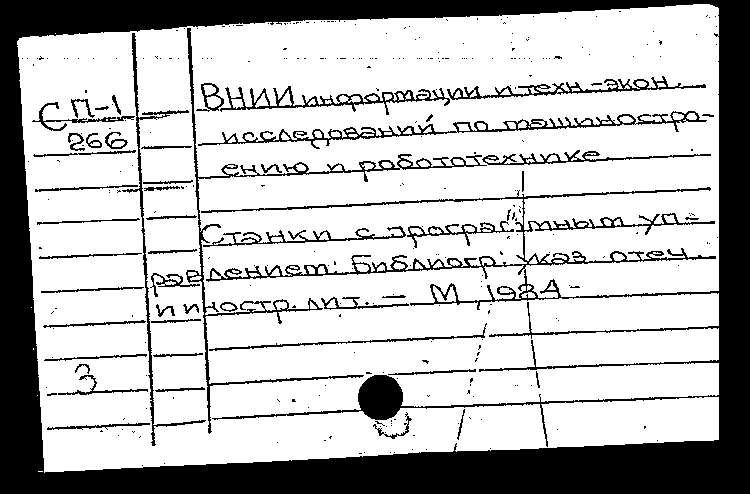 СП-1
266
ВНИИ информации и техн.-экон.
исследований по машиностро-
ению и робототехнике.
Станки с программным уп-
равлением: Библиогр. указ. отеч.
и иностр. лит. – М, 1984 -
3